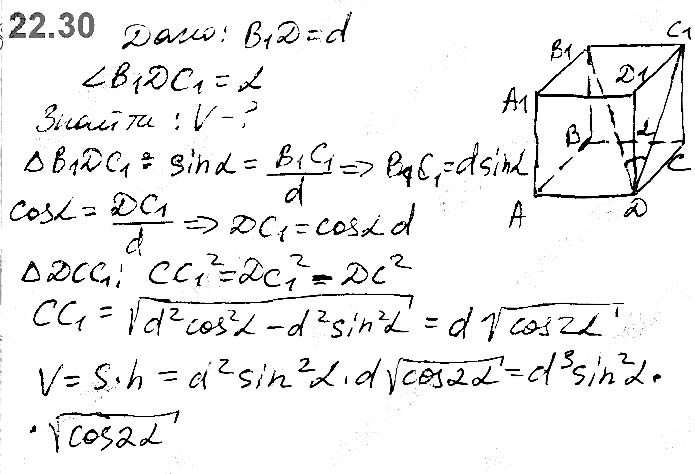 22.30 Дано: B₁D = d
∠B₁DC₁ = α
Знайти: V - ?
△B₁DC₁: sinα = B₁C₁/d ⇒ B₁C₁ = d sinα
cosα = DC₁/d ⇒ DC₁ = cosα d
△DCC₁: CC₁² = DC₁² - DC²
CC₁ = √(d²cos²α - d²sin²α) = d √(cos2α)
V = S·h = d² sin²α · d √(cos2α) = d³ sin²α ·
· √(cos2α)
B₁
C₁
D₁
A₁
B
α
C
A
D